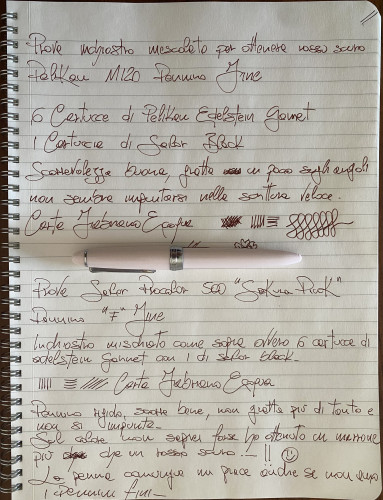 Prova inchiostro mescolato per ottenere rosso scuro
Pelikan M120 Pennino Fine
6 Cartucce di Pelikan Edelstein Garnet
1 Cartuccia di Sailor Black
Scorrevolezza buona, gratta un poco sugli angoli
non sembra impuntarsi nella scrittura veloce.
Carta Fabriano Ecoqua
Prova Sailor Procolor 500 "Sakura Pink"
Pennino "F" Fine
Inchiostro mischiato come sopra ovvero 6 cartucce di
edelstein garnet con 1 di sailor black.
Carta Fabriano Ecoqua
Pennino rigido, scorre bene, non gratta più di tanto e
non si impunta.
Sul colore non saprei forse ho ottenuto un marrone
più che un rosso scuro...! !!
La penna comunque mi piace anche se non
i pennini fini-